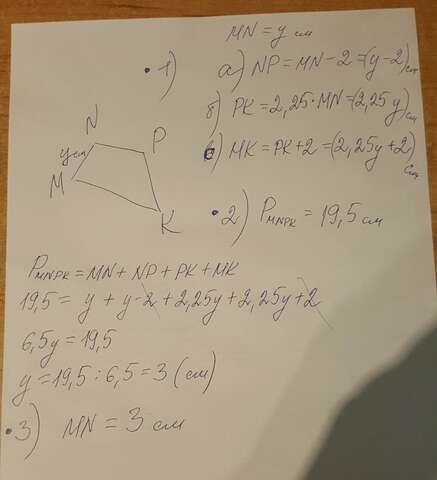 MN = y см
• 1)
а) NP = MN - 2 = (y - 2) см
б) PK = 2,25 · MN = (2,25 y) см
в) MK = PK + 2 = (2,25y + 2) см
N
P
y см
M
K
• 2) P MNPK = 19,5 см
P MNPK = MN + NP + PK + MK
19,5 = y + y - 2 + 2,25y + 2,25y + 2
6,5y = 19,5
y = 19,5 : 6,5 = 3 (см)
• 3) MN = 3 см